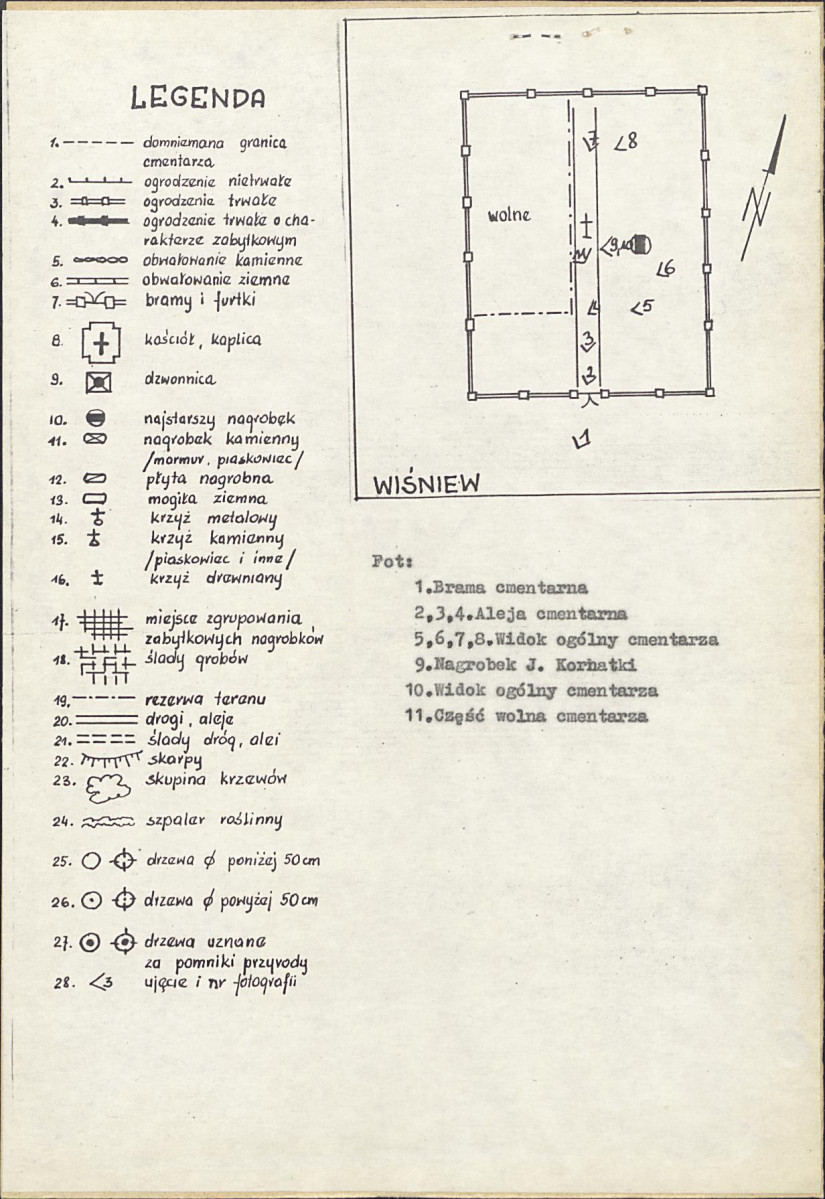 LEGENDA
1. domniemana granica
cmentarza
2. ogrodzenie nietrwałe
3. ogrodzenie trwałe
4. ogrodzenie trwałe o cha-
rakterze zabytkowym
5. obwałowanie kamienne
6. obwałowanie ziemne
7. bramy i furtki
8. kościół, kaplica
9. dzwonnica
10. najstarszy nagrobek
11. nagrobek kamienny
/marmur, piaskowiec/
12. płyta nagrobna
13. mogiła ziemna
14. krzyż metalowy
15. krzyż kamienny
/piaskowiec i inne/
16. krzyż drewniany
17. miejsce zgrupowania
zabytkowych nagrobków
18. ślady grobów
19. rezerwa terenu
20. drogi, aleje
21. ślady dróg, alei
22. skarpy
23. skupina krzewów
24. szpaler roślinny
25. drzewa ϕ poniżej 50cm
26. drzewa ϕ powyżej 50cm
27. drzewa uznane
za pomniki przyrody
28. <3 ujęcie i nr fotografii
N
7
8
wolne
9,10
6
4
5
3
2
1
WIŚNIEW
Fot:
1.Brama cmentarna
2,3,4.Aleja cmentarna
5,6,7,8.Widok ogólny cmentarza
9.Nagrobek J. Korhatki
10.Widok ogólny cmentarza
11.Część wolna cmentarza